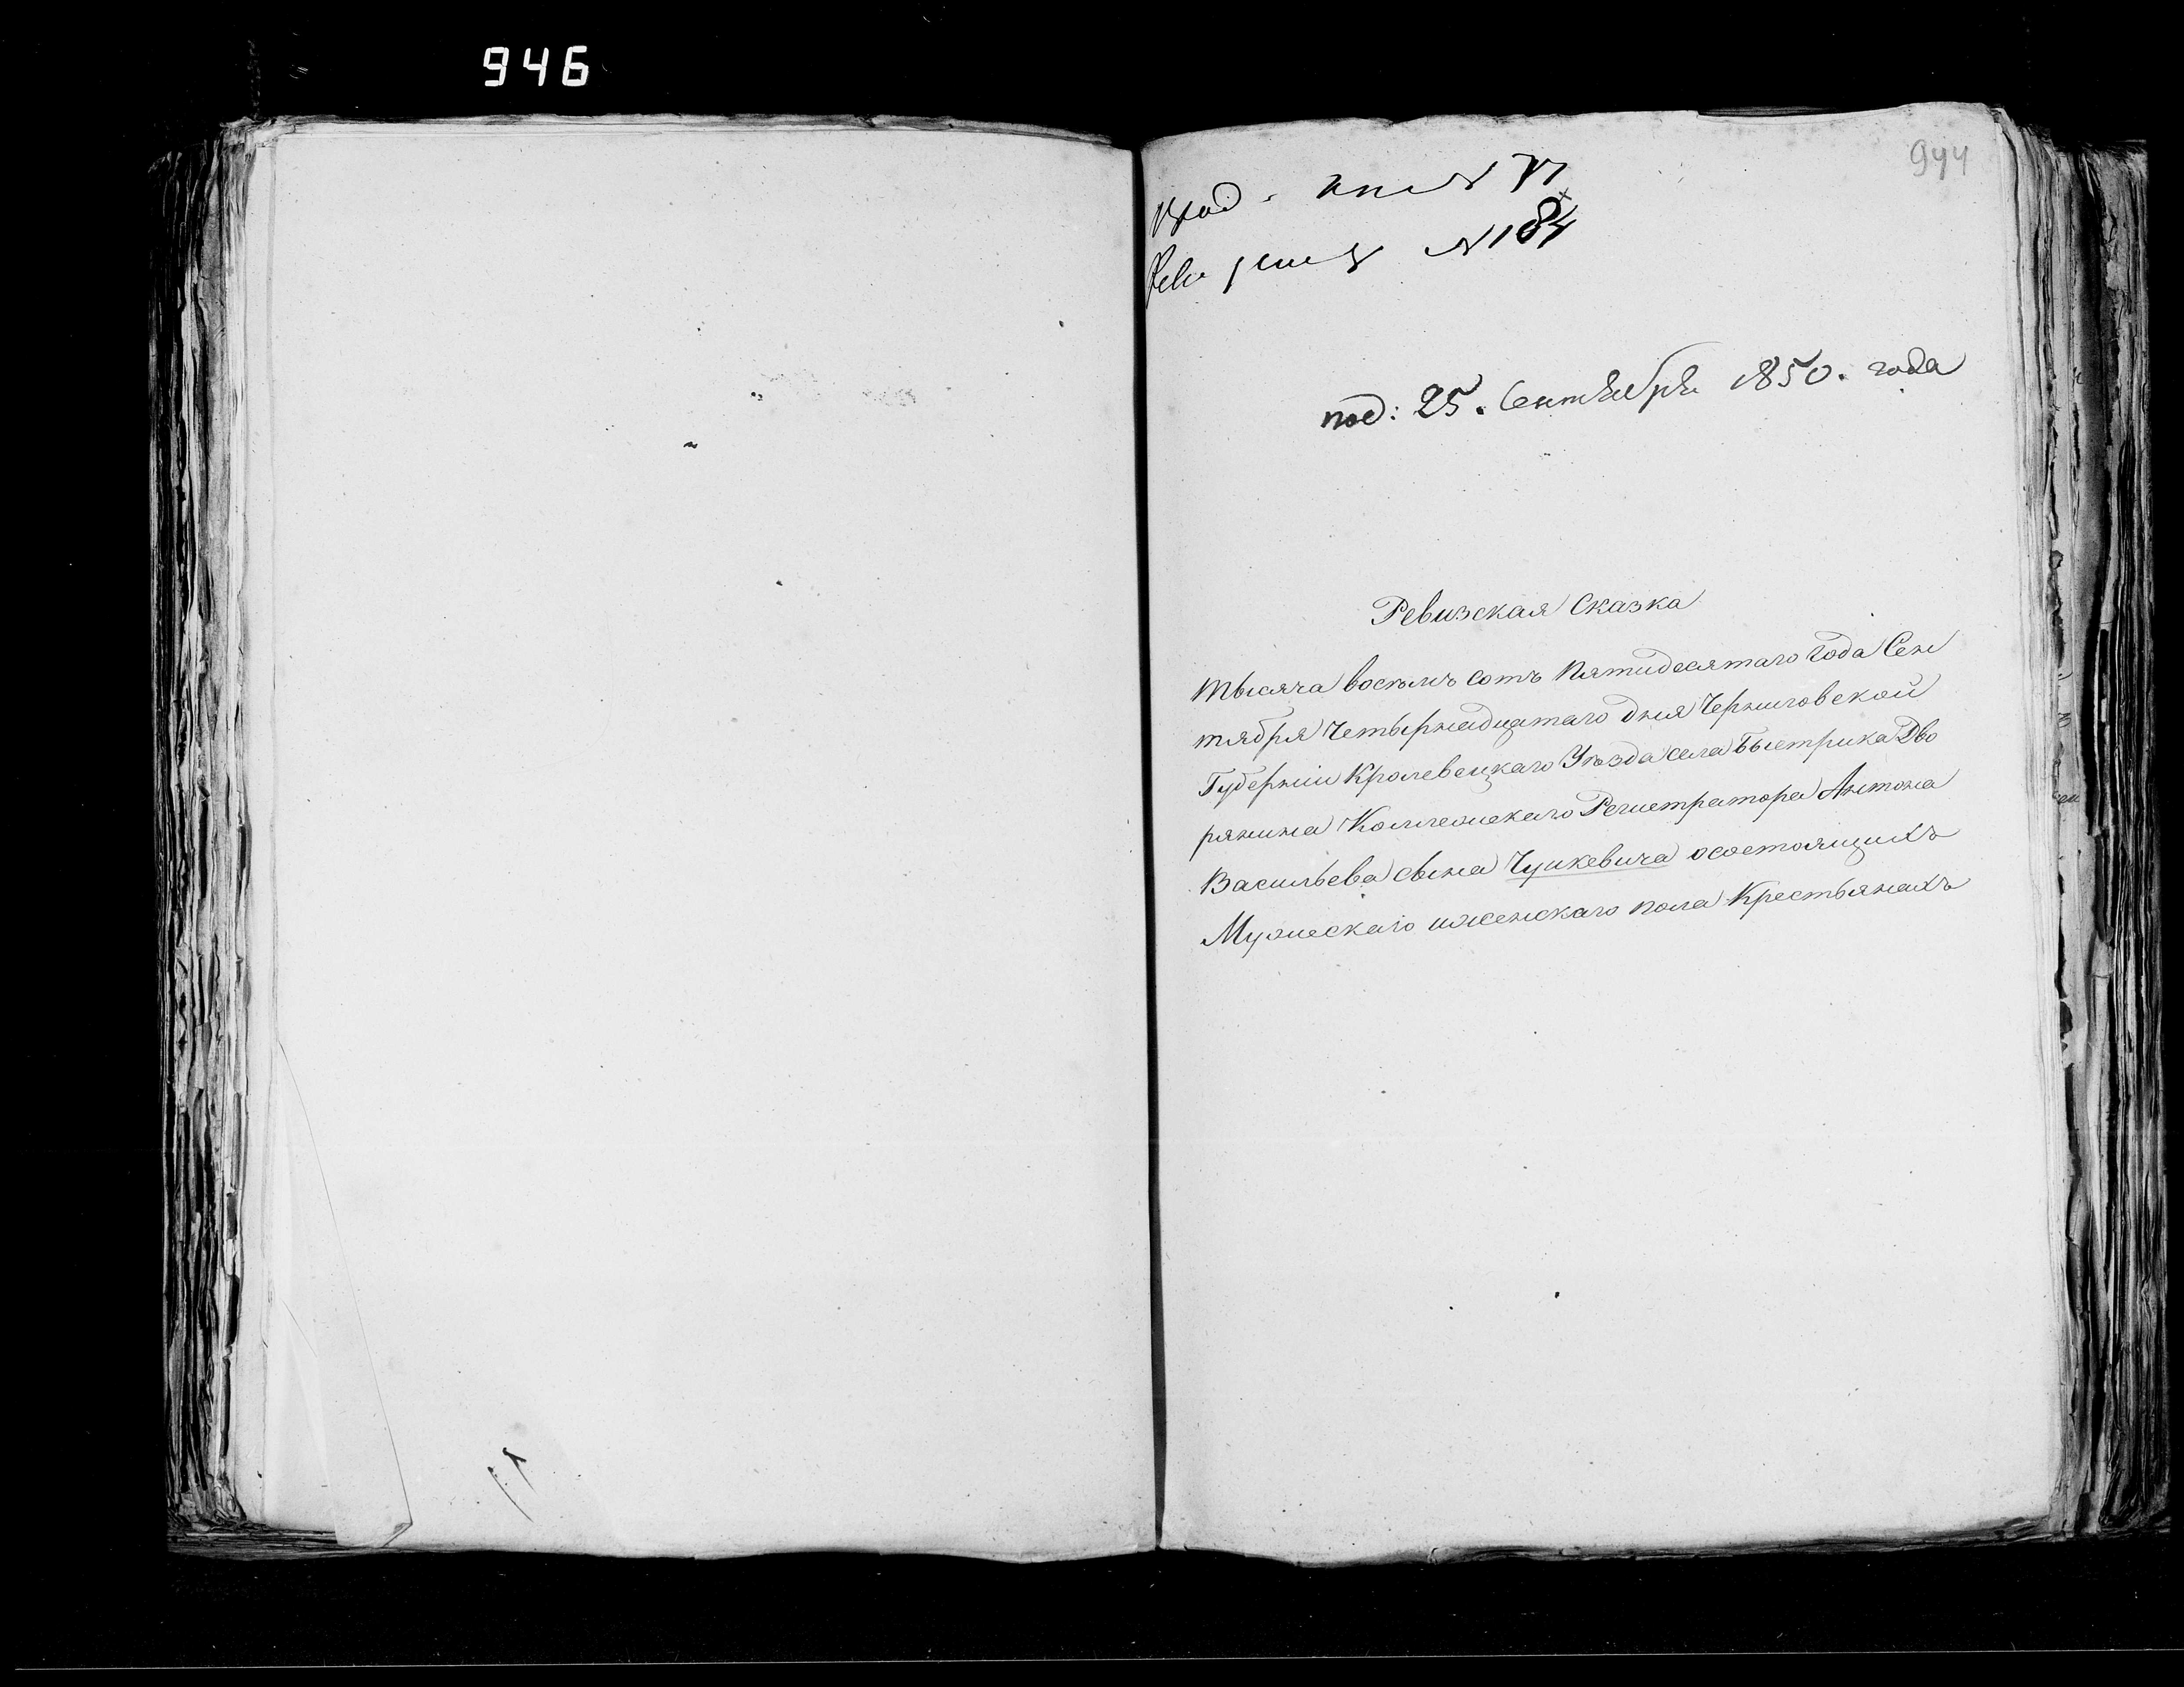 946
944
№ 184
под: 25. Сентября 1850. года
Ревизская Сказка
Тысяча восемь сотъ Пятидесятаго Года Сен
тября Четырнадцатаго дня Черниговской
Губерніи Кролевецкаго Уѣзда села Быстрика Дво
рянина Коллежскаго Регистратора Антона
Васильева сына Чуйкевича осостоящихъ
Мужескаго иженскаго пола Крестьянахъ